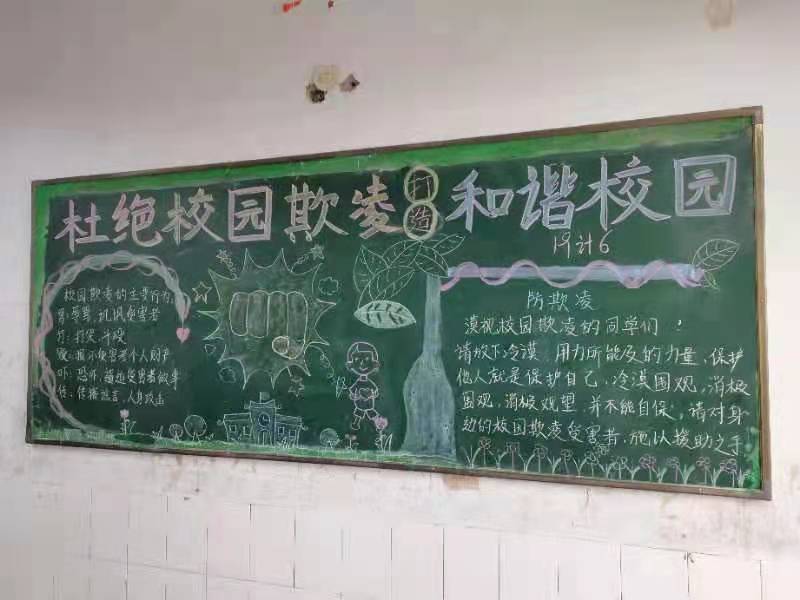 杜绝校园欺凌打造和谐校园
19计6
校园欺凌的主要行为:
骂:辱骂,讥讽受害者
打:打架、斗殴
毁:损坏受害者个人财产
吓:恐吓、逼迫受害者做事
传:传播谣言,人身攻击
防欺凌
漠视校园欺凌的同学们!
请放下冷漠,用力所能及的力量,保护
他人就是保护自己,冷漠围观,消极
围观,消极观望,并不能自保,请对身
边的校园欺凌受害者,施以援助之手